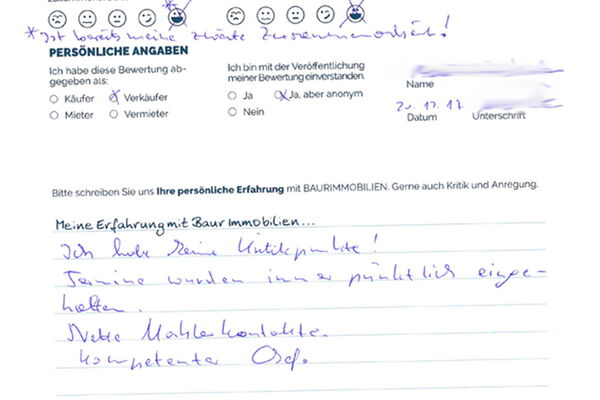 * Ist bereits meine zweite Zusammenarbeit!
PERSÖNLICHE ANGABEN
Ich habe diese Bewertung ab-
gegeben als:
Käufer Verkäufer
Mieter Vermieter
Ich bin mit der Veröffentlichung
meiner Bewertung einverstanden.
Ja Ja, aber anonym
Nein
Name
17
Datum Unterschrift
Bitte schreiben Sie uns Ihre persönliche Erfahrung mit BAURIMMOBILIEN. Gerne auch Kritik und Anregung.
Meine Erfahrung mit Baur Immobilien...
Ich habe keine Kritikpunkte!
Termine wurden immer pünktlich einge-
halten.
Nette Maklerkontakte.
Kompetente